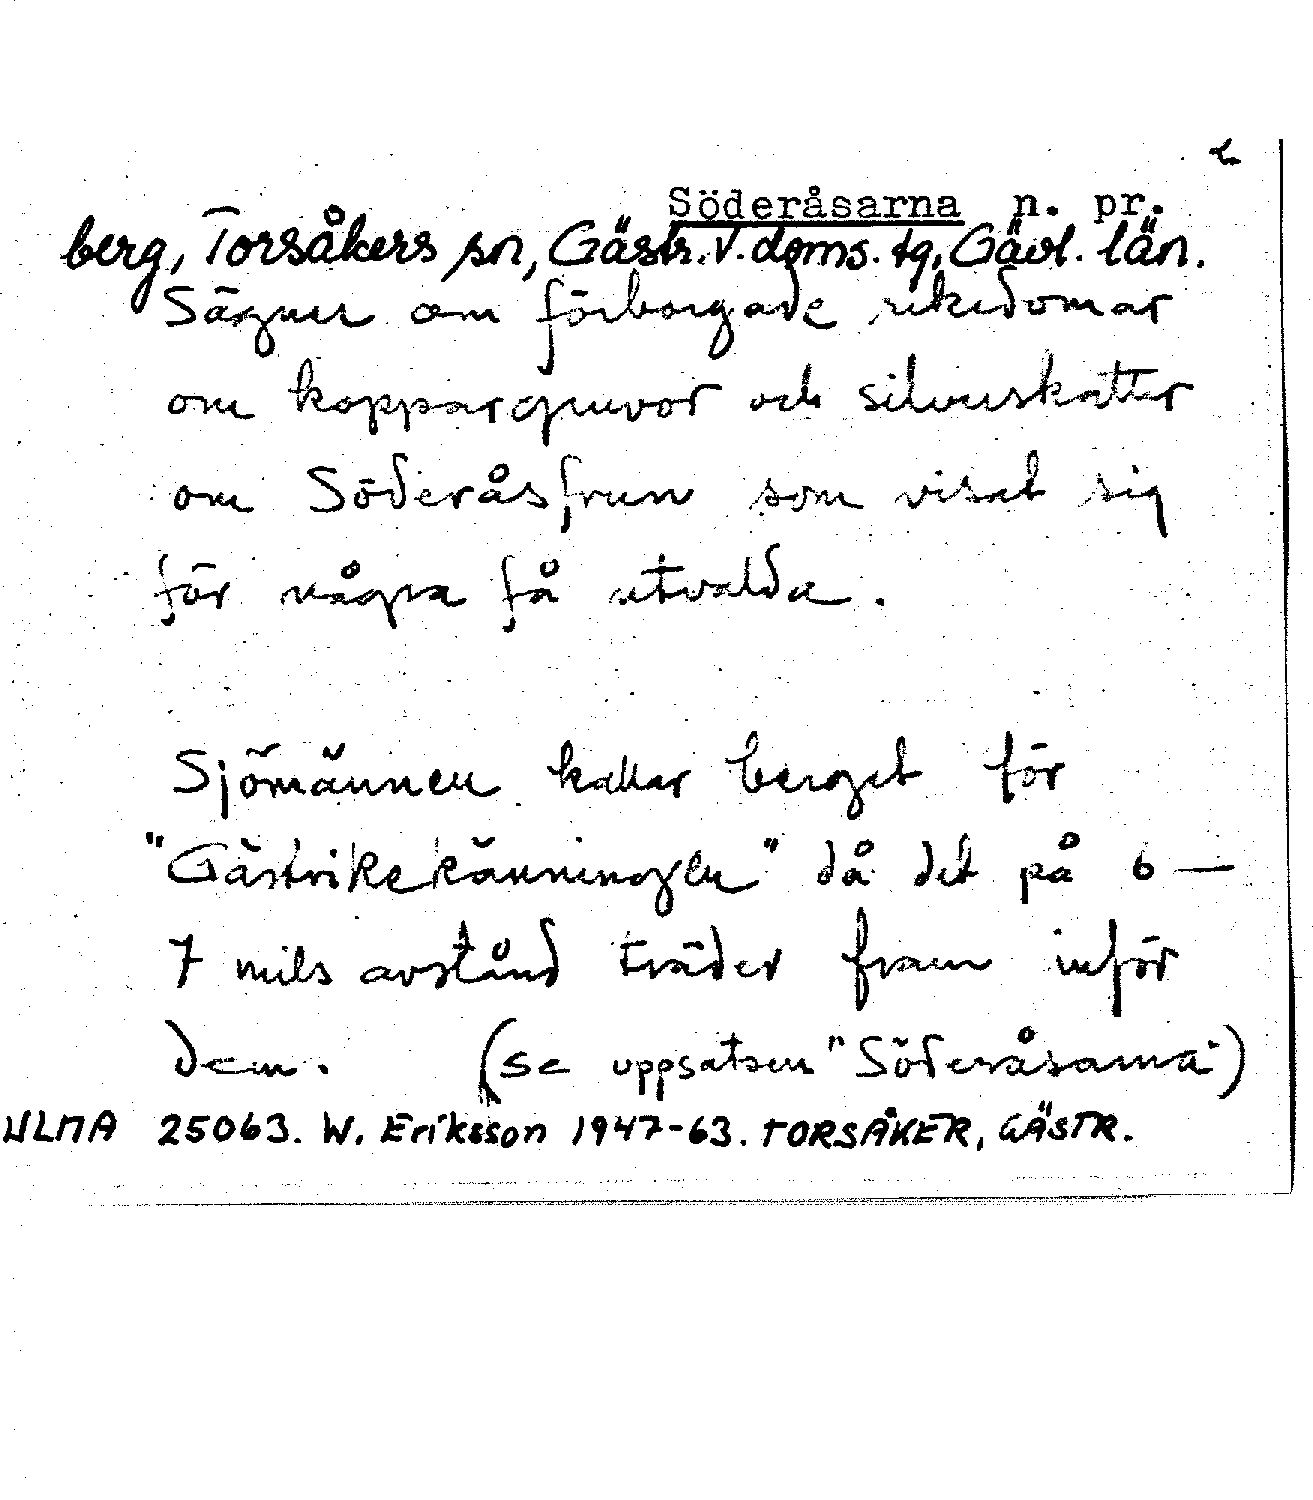 Söderåsarna n. pr.
berg, Torsåkers sn, Gästr. V. doms. tg, Gävl. län.
Sägner om förborgade rikedomar
om koppargruvor och silverskatter
om Söderåsfrun som visat sig
för några få utvalda.
Sjömännen kallar berget för
"Gästrikekänningen" då det på 6 —
7 mils avstånd träder fram inför
dem. (se uppsatsen "Söderåsarna")
ULMA 25063. W. Eriksson 1947-63. TORSÅKER, GÄSTR.